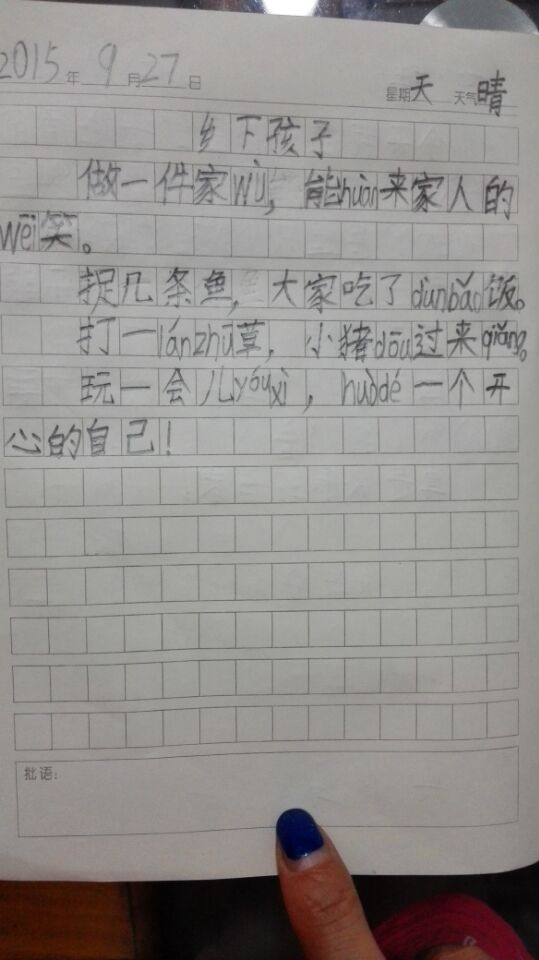 2015年9月27日 星期天 天气晴
乡下孩子
做一件家wù，能huàn来家人的
wēi笑。
捉几条鱼，大家吃了dùnbǎo饭。
打一lánzhū草，小猪dōu过来qiǎng。
玩一会儿yóuxì，huòdé一个开
心的自己！
批语：